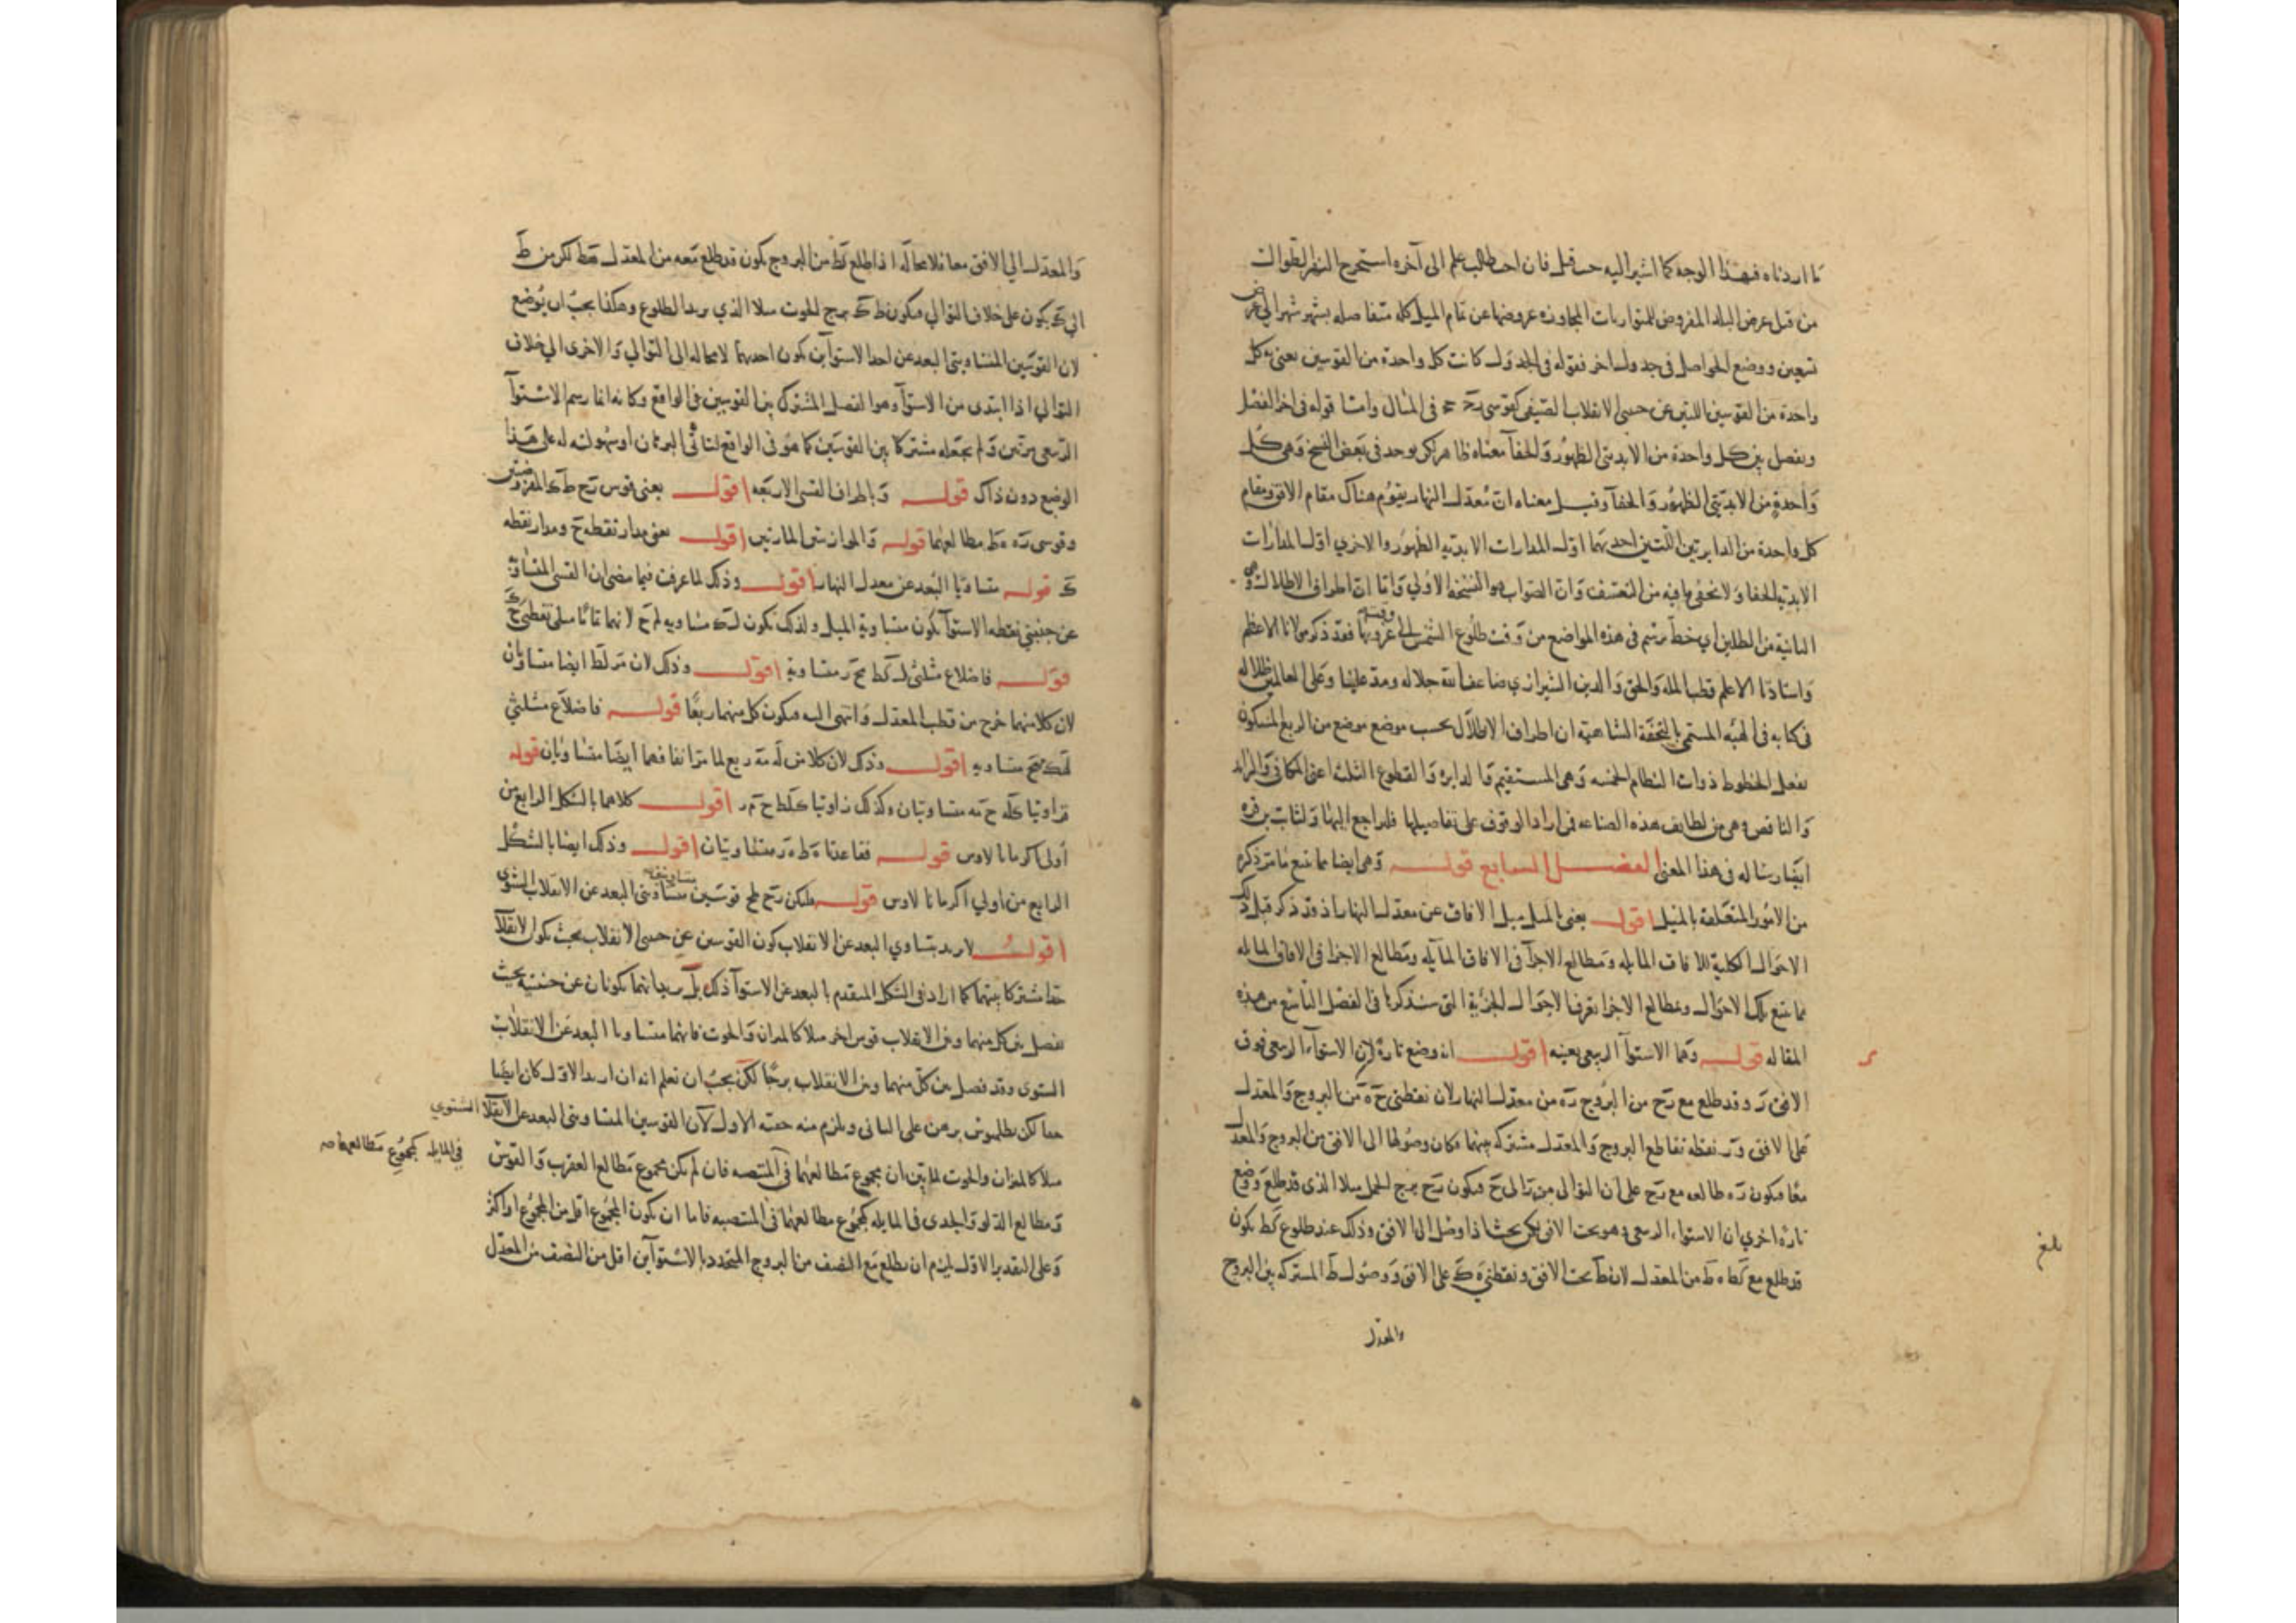 ما اردناه فهذا الوجه كما اشير اليه حيث قيل فان احب طالب علم الى آخره استخرج النهر الطوال
من قبل عرض البلد المفروض للمتواريات المجاوزه عروضها عن تمام الميل كله متفاصله بشهر شهر الي عرض
تسعين ووضع الحواصل في جدول اخر فقوله في الجدول كانت كل واحدة من القوسين يعني به كل
واحدة من القوسين اللتين عن جنبتي الانقلاب الصيفي كقوسي في المثال واما قوله في اخر الفصل
ويفصل بين كل واحدة من الابديتي الظهور والخفآ معناه ظاهر لكن يوجد في بعض النسخ وهي كل
واحدة من الابديتي الظهور والخفآ وقيل معناه ان معدل النهار يقوم هناك مقام الافق ومقام
كل واحدة من الدايرتين اللتين احديهما اول المدارات الابدية الظهور والاخري اول المدارات
الابدية الخفا ولا يخفي ما فيه من التعسف وان الصواب هو النسخة الاولي واما ان اطراف الاظلال
الثانية من الظلين اي خط يرتسم في هذه المواضع من وقت طلوع الشمس الي وقت غروبها فقد ذكر مولانا الاعظم
واستاذنا الاعلم قطب الملة والحق والدين الشيرازي ضاعف الله جلاله ومد علينا وعلى العالمين ظلاله
في كتابه في الهيئه المسمي بالتحفة الشاهية ان اطراف الاظلال بحسب موضع موضع من الربع المسكون
تفعل الخطوط ذوات النظام الخمسه وهي المستقيم والدايره والقطوع الثلث اعني المكافي والزايد
والناقص وهي من لطايف هذه الصناعه فمن اراد الوقوف على تفاصيلها فليراجع اليها ولثابت بن قره
ايضا رساله في هذا المعني الفصل السابع قوله وهي ايضا مما يتبع ما مر ذكره
من الامور المتعلقة بالميل اقول يعني بالميل ميل الافاق عن معدل النهار اذ قد ذكر قبل ذلك
الاحوال الكلية للافاق المايله ومطالع الاجزآ في الافاق المآيله ومطالع الاجزا في الافاق المايله
مما يتبع تلك الاحوال وبمطالع الاجزا يعرف الاحوال الجزية التي سنذكرها في الفصل التاسع من هذه
المقاله قوله وهما الاستوآ الربيعي بعينه اقول انه وضع تارة ان الاستوآء الربيعي فوق
الافق ر وقد طلع مع رح من البروج ره من معدل النهار لان نقطتي ح ه من البروج والمعدل
على الافق و ر نقطة تقاطع البروج والمعدل مشتركه بينهما فكان وصولها الى الافق من البروج والمعدل
معا فيكون ره طالعه مع رح على ان التوالي من ر الى ح فيكون رح برج الحمل مثلا الذي قد طلع ووضع
تارة اخري ان الاستواء الربيعي ط وهو تحت الافق لكن بحيث اذا وصل الى الافق وذلك عند طلوع كط يكون
قد طلع مع كط ه ط من المعدل لان ط تحت الافق ونقطتي ه ك على الافق ووصول ط المشتركه بين البروج
والمعدل
بلغ
والمعدل الي الافق معا فلا محالة اذا طلع كط من البروج يكون قد طلع معه من المعدل هط لكن من ط
الي ك يكون على خلاف التوالي فيكون ط ك برج الحوت مثلا الذي يريد الطلوع وهكذا يجب ان يوضع
لان القوسين المتساويتي البعد عن احد الاستوآين يكون احديهما لا محاله الى التوالي والاخرى الي خلاف
التوالي اذا ابتدى من الاستوآ وهو الفصل المشترك بين القوسين في الواقع وكانه انما رسم الاستوآ
الربيعي مرتين ولم يجعله مشتركا بين القوسين كما هو في الواقع لتاتي البرهان او سهولته له على هذا
الوضع دون ذاك قوله وباطراف القسي الاربعه اقول يعني قوس رح ط ك المفروضتين
وقوسي ره ه ط مطالعهما قوله والموازيتي المارتين اقول يعني مدار نقطه ح ومدار نقطه
ك قوله متساويا البعد عن معدل النهار اقول وذلك لما عرفت فيما مضى ان القسي المتساوية
عن جنبتي نقطه الاستوآ يكون متساوية الميل ولذلك يكون ل ك مساويه لم ح لانهما تماما ميلي نقطتي ح ك
قوله فاضلاع مثلثي ل ك ط م ح ر متساوية اقول وذلك لان م ر ل ط ايضا متساويان
لان كلا منهما خرج من قطب المعدل وانتهى اليه فيكون كل منهما ربعا قوله فاضلاع مثلثي
متساويه اقول وذلك لان كلا من له مه ربع لما مر انفا فهما ايضا متساويان قوله
فزاويتا ك ل ه ح م ه متساويتان وكذلك زاويتا ك ل ط ح م ر اقول كلاهما بالشكل الرابع من
أولى اكر مانالاوس قوله فقاعدتا ه ط ه ر متساويتان اقول وذلك ايضا بالشكل
الرابع من اولي اكر مانالاوس قوله فليكن رح طح قوسين متساويتي البعد عن الانقلاب الشتوي
اقول لا يريد بتساوي البعد عن الانقلاب كون القوسين عن جنبتي الانقلاب بحيث يكون الانقلاب
حدا مشتركا بينهما كما اراد في الشكل المتقدم بالبعد عن الاستوآ ذلك بل ربما انهما يكونان عن جنبتيه بحيث
يفصل بين كل منهما وبين الانقلاب قوس اخر مثلا كالميزان والحوت فانهما متساويا البعد عن الانقلاب
الشتوي وقد فصل بين كل منهما وبين الانقلاب برجا لكن يجب ان تعلم انه ان اريد الاول كان ايضا
حقا لكن بطلميوس برهن على الثاني ويلزم منه حقية الاول لان القوسين المتساويتي البعد عن الانقلاب الشتوي
مثلا كالميزان والحوت لما تبين ان مجموع مطالعهما في المنتصبه فان لم يكن مجموع مطالع العقرب والقوس
في المايله كمجموع مطالعهما صه
ومطالع الدلو والجدى في المايله كمجموع مطالعهما في المنتصبه فاما ان يكون المجموع اقل من المجموع او اكثر
وعلى التقدير الاول يلزم ان يطلع مع النصف من البروج المتحدد بالاستوآين اقل من النصف من المعدل